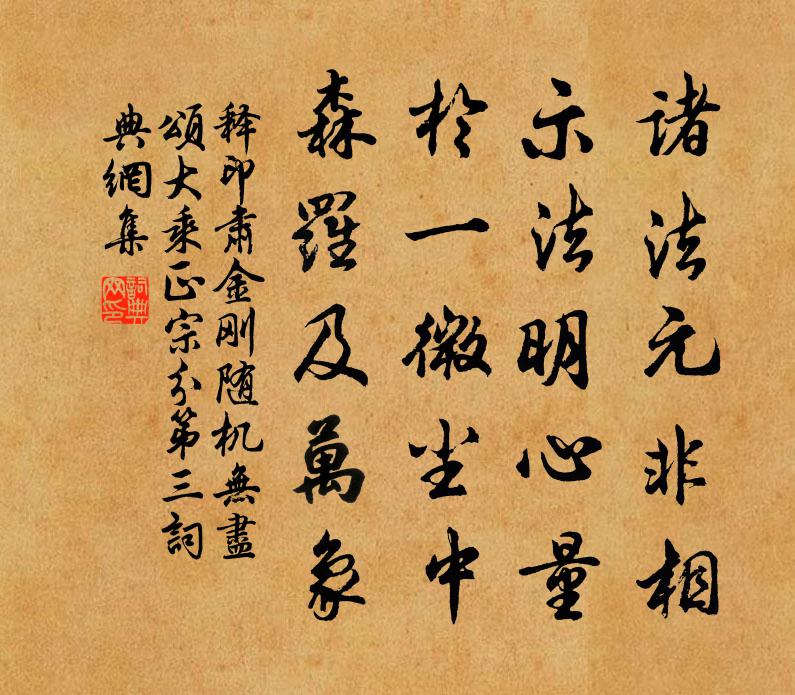 諸法元非相
示法明心量
於一微尘中
森羅及萬象
释印肃金刚随机無盡
頌大乘正宗分第三詞
典網集
詞典
网印